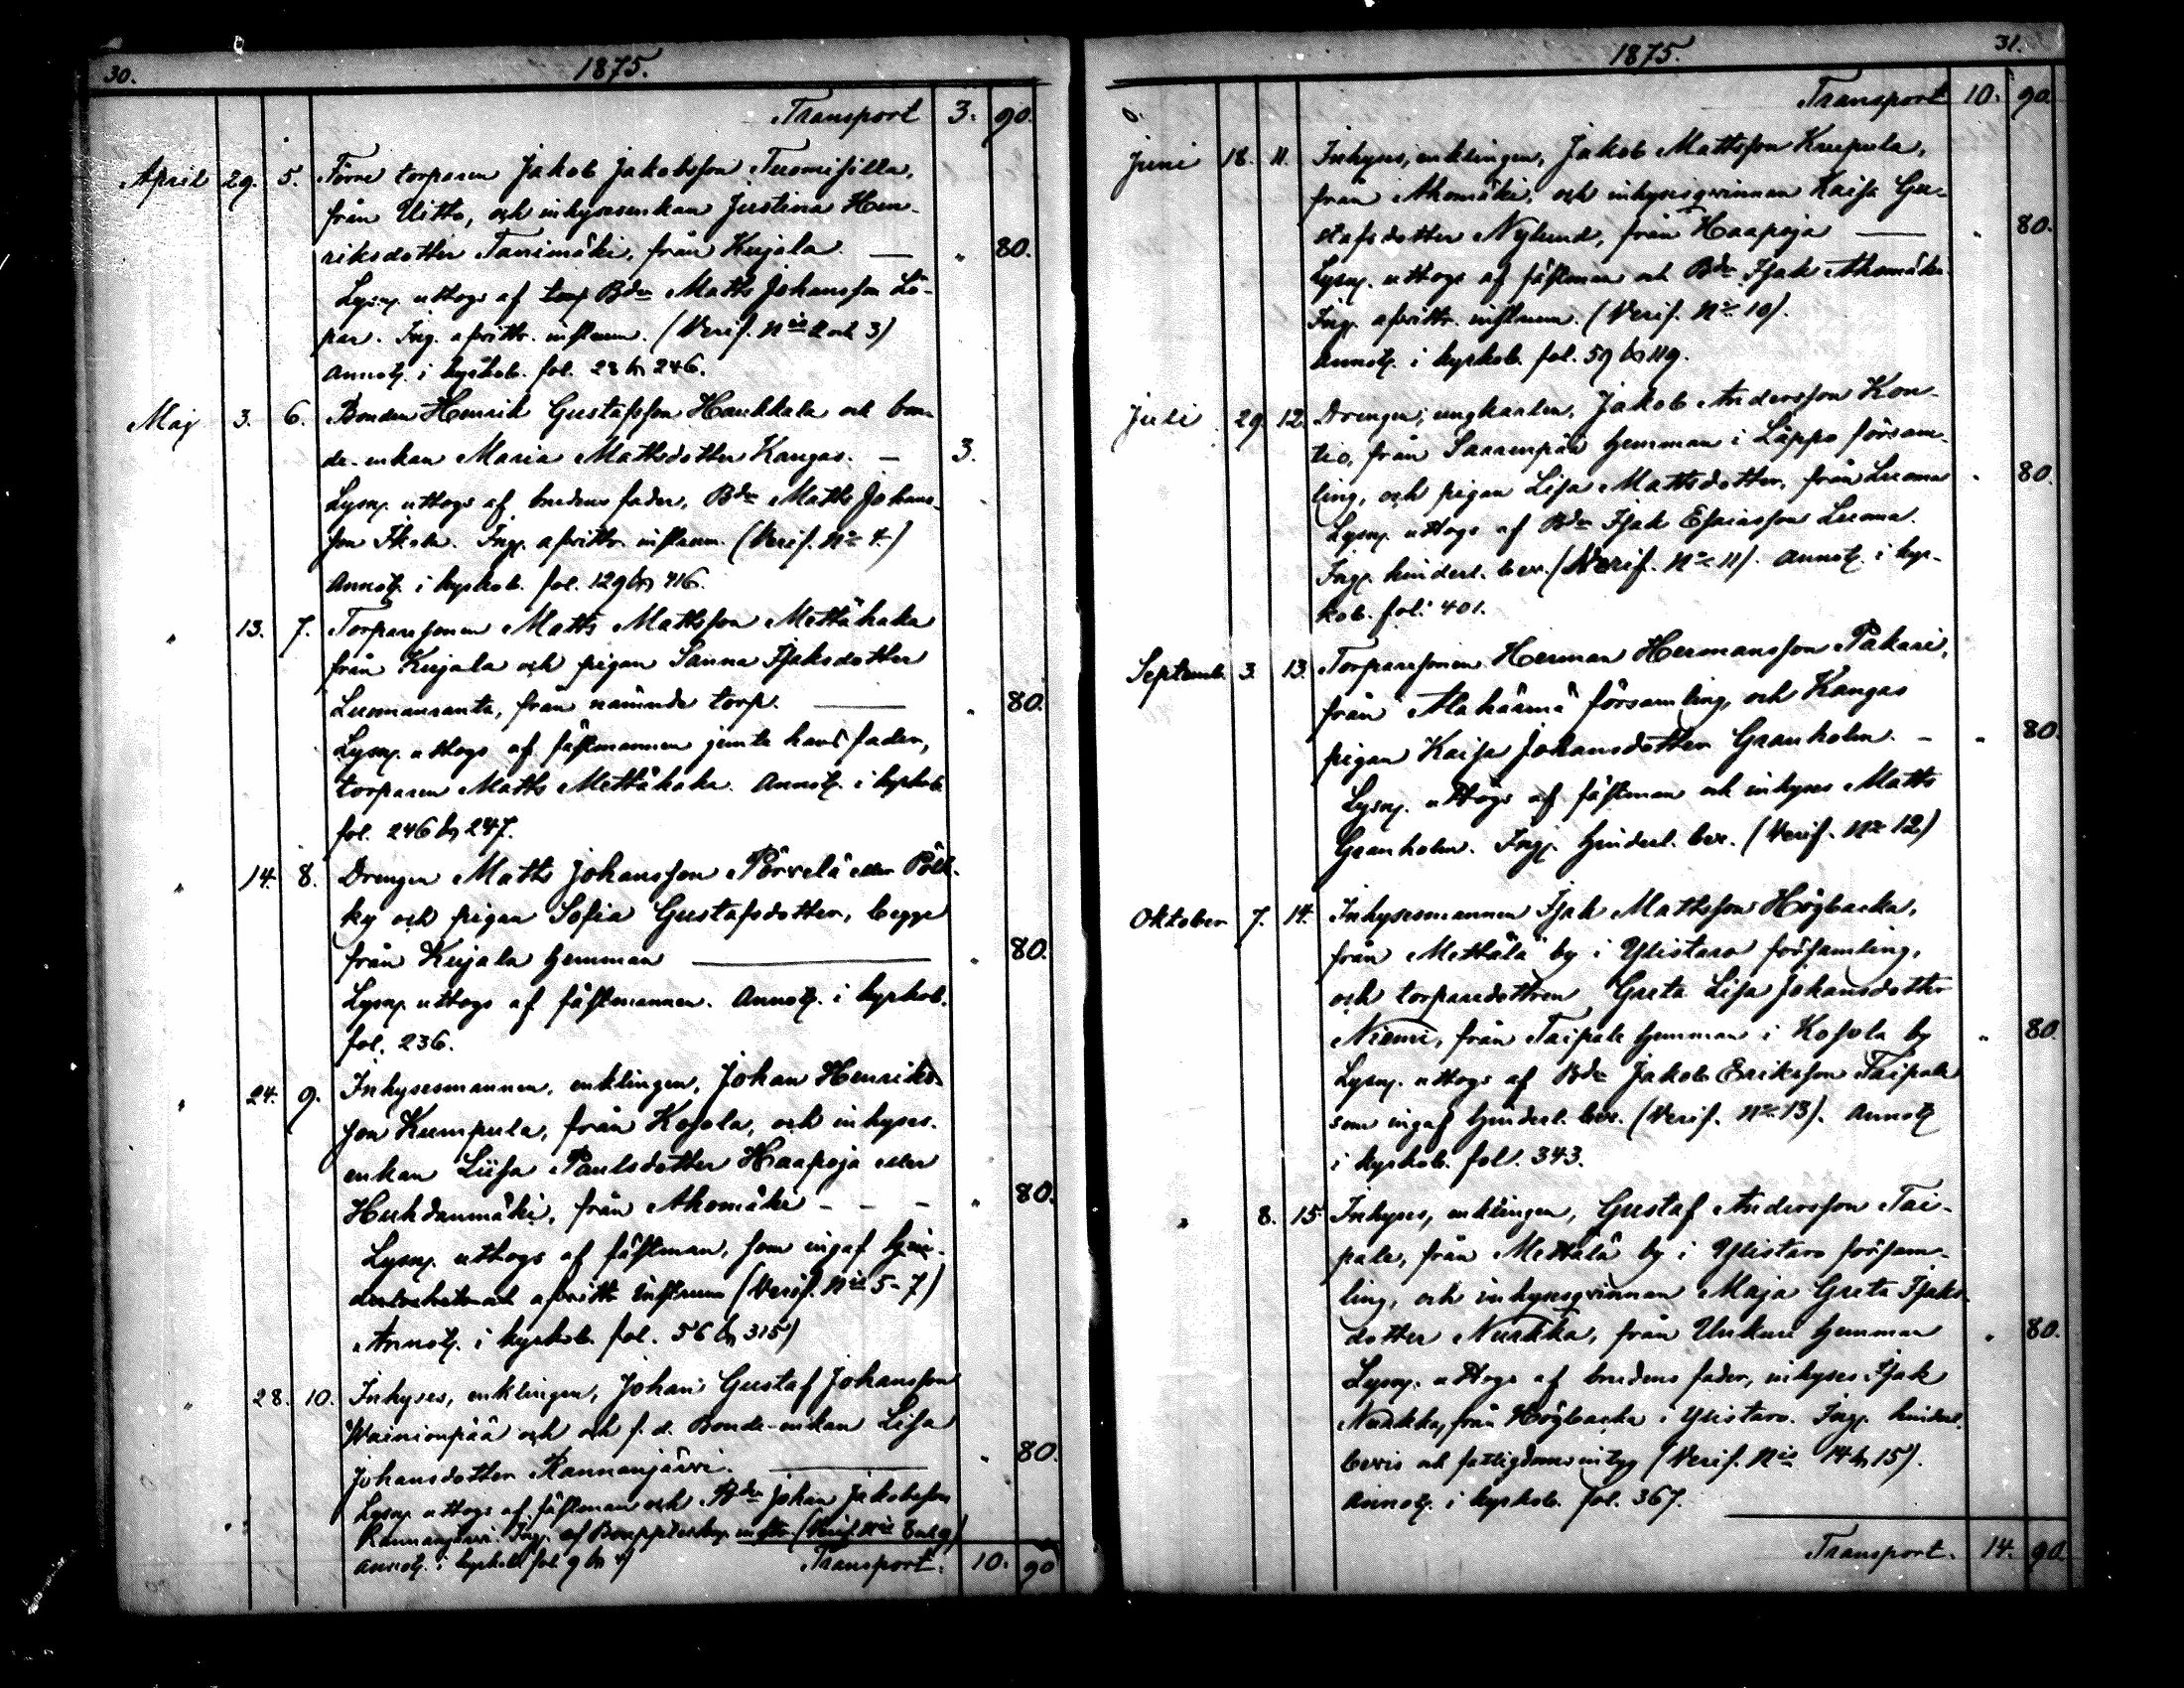 30. 1875.
Transport 3. 90.
April 29. 5. Förre torparen Jakob Jakobsson Tuomisilla,
från Uitto, och inhysesenkan Justina Hen-
riksdotter Tassimäki, från Kujala. — " 80.
Lysn. uttogs af Bdn Matts Johansson Lö-
par. Ing. afvittr. instrum. (Verif. Nis 2 och 3)
Annot. i kyrkob. fol. 23 & 246.
Maj 3. 6. Bonden Henrik Gustafsson Haukkala och bon-
de-enkan Maria Mattsdotter Kangas. — 3.
Lysn. uttogs af brudens fader, Bdn Matts Johans-
son Ikola. Ing. afvittr. instrum. (Verif. No 4.)
Annot. i kyrkob. fol. 129 & 416.
" 13. 7. Torparesonen Matts Mattsson Mettähaka
från Kujala och pigan Sanna Isaksdotter
Luomanranta, från nämnde torp. — " 80.
Lysn. uttogs af fästmannen jemte hans fader,
torparen Matts Mettähaka. Annot. i kyrkob.
fol. 246 & 247.
" 14. 8. Drengen Matts Johansson Pörvelä eller Pölk-
ky och pigan Sofia Gustafsdotter, begge
från Kujala hemman — " 80.
Lysn. uttogs af fästmannen. Annot. i kyrkob.
fol. 236.
" 24. 9. Inhysesmannen, enklingen, Johan Henriks-
son Kumpula, från Kosola, och inhyses-
enkan Liisa Paulsdotter Haapoja eller
Huhdanmäki, från Ahomäki - - - " 80.
Lysn. uttogs af fästman, som ingaf hin-
afvittr. instrum (Verif. Nis 5-7)
Annot. i kyrkob. fol. 56 & 315)
" 28. 10. Inhyses, enklingen, Johan Gustaf Johansson
Wainionpää och och f. d. Bonde-enkan Lisa
Johansdotter Rannanjärvi. — " 80.
Lysn. uttogs af fästman och Bdn Johan Jakobsson
Rannanjärvi. Ing. af instr. (Verif. Nis 8 och 9)
Annot. i kyrkob. fol. 9 & Transport. 10. 90
1875. 31.
Transport 10. 90
Juni 18. 11. Inhyses, enklingen, Jakob Mattsson Kumpula,
från Ahomäki, och inhysesqvinnan Kaisa Gu-
stafsdotter Nylund, från Haapoja — " 80.
Lysn. uttogs af fästman och Bdn Isak Ahomäki.
Ing. afvittr. instrum. (Verif. No 10).
Annot. i kyrkob. fol. 59 & 119.
Juli 29. 12. Drengen, ungkarlen, Jakob Andersson Kon-
tio, från Saarenpää hemman i Lappo församl-
ling, och pigan Lisa Mattsdotter, från Luoma " 80.
Lysn. uttogs af Bdn Isak Esaiasson Luoma.
Ing. hinderl. bev. (Verif. No 11). Annot. i kyr-
kob. fol. 401.
Septemb. 3. 13. Torparesonen Herman Hermansson Pakari,
från Alahärmä församling, och Kangas
pigan Kaisa Johansdotter Granholm. - " 80.
Lysn. uttogs af fästman och inhyses Matts
Granholm. Ing. hinderl. bev. (Verif. No 12)
Oktober 7. 14. Inhysesmannen Isak Mattsson Högbacka,
från Mettälä by i Ylistaro församling,
och torparedottren Greta Lisa Johansdotter
Niemi, från Taipale hemman i Kosola by " 80
Lysn. uttogs af Bdn Jakob Eriksson Taipale
som ingaf hinderl. bev. (Verif. No 13). Annot
i kyrkob. fol. 343.
" 8. 15. Inhyses, enklingen, Gustaf Andersson Tai-
pale, från Mettälä by i Ylistaro försam-
ling, och inhysesqvinnan Maja Greta Isaks-
dotter Nurkka, från Unkuri hemman " 80.
Lysn. uttogs af brudens fader, inhyses Isak
Nurkka, från Högbacka i Ylistaro. Ing. hinderl.
bevis och fattigdomsintyg (Verif. Nis 14 & 15).
Annot. i kyrkob. fol. 367.
Transport. 14. 90